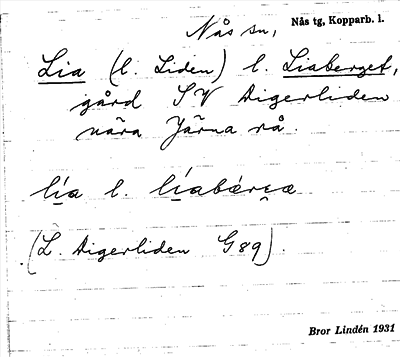 Nås sn, Nås tg, Kopparb. l.
Lia (l. Liden) l. Liaberget,
gård SV Digerliden
nära Järna rå.
lía l. líabǽrɛ̯æ
(L. Digerliden G89).
Bror Lindén 1931